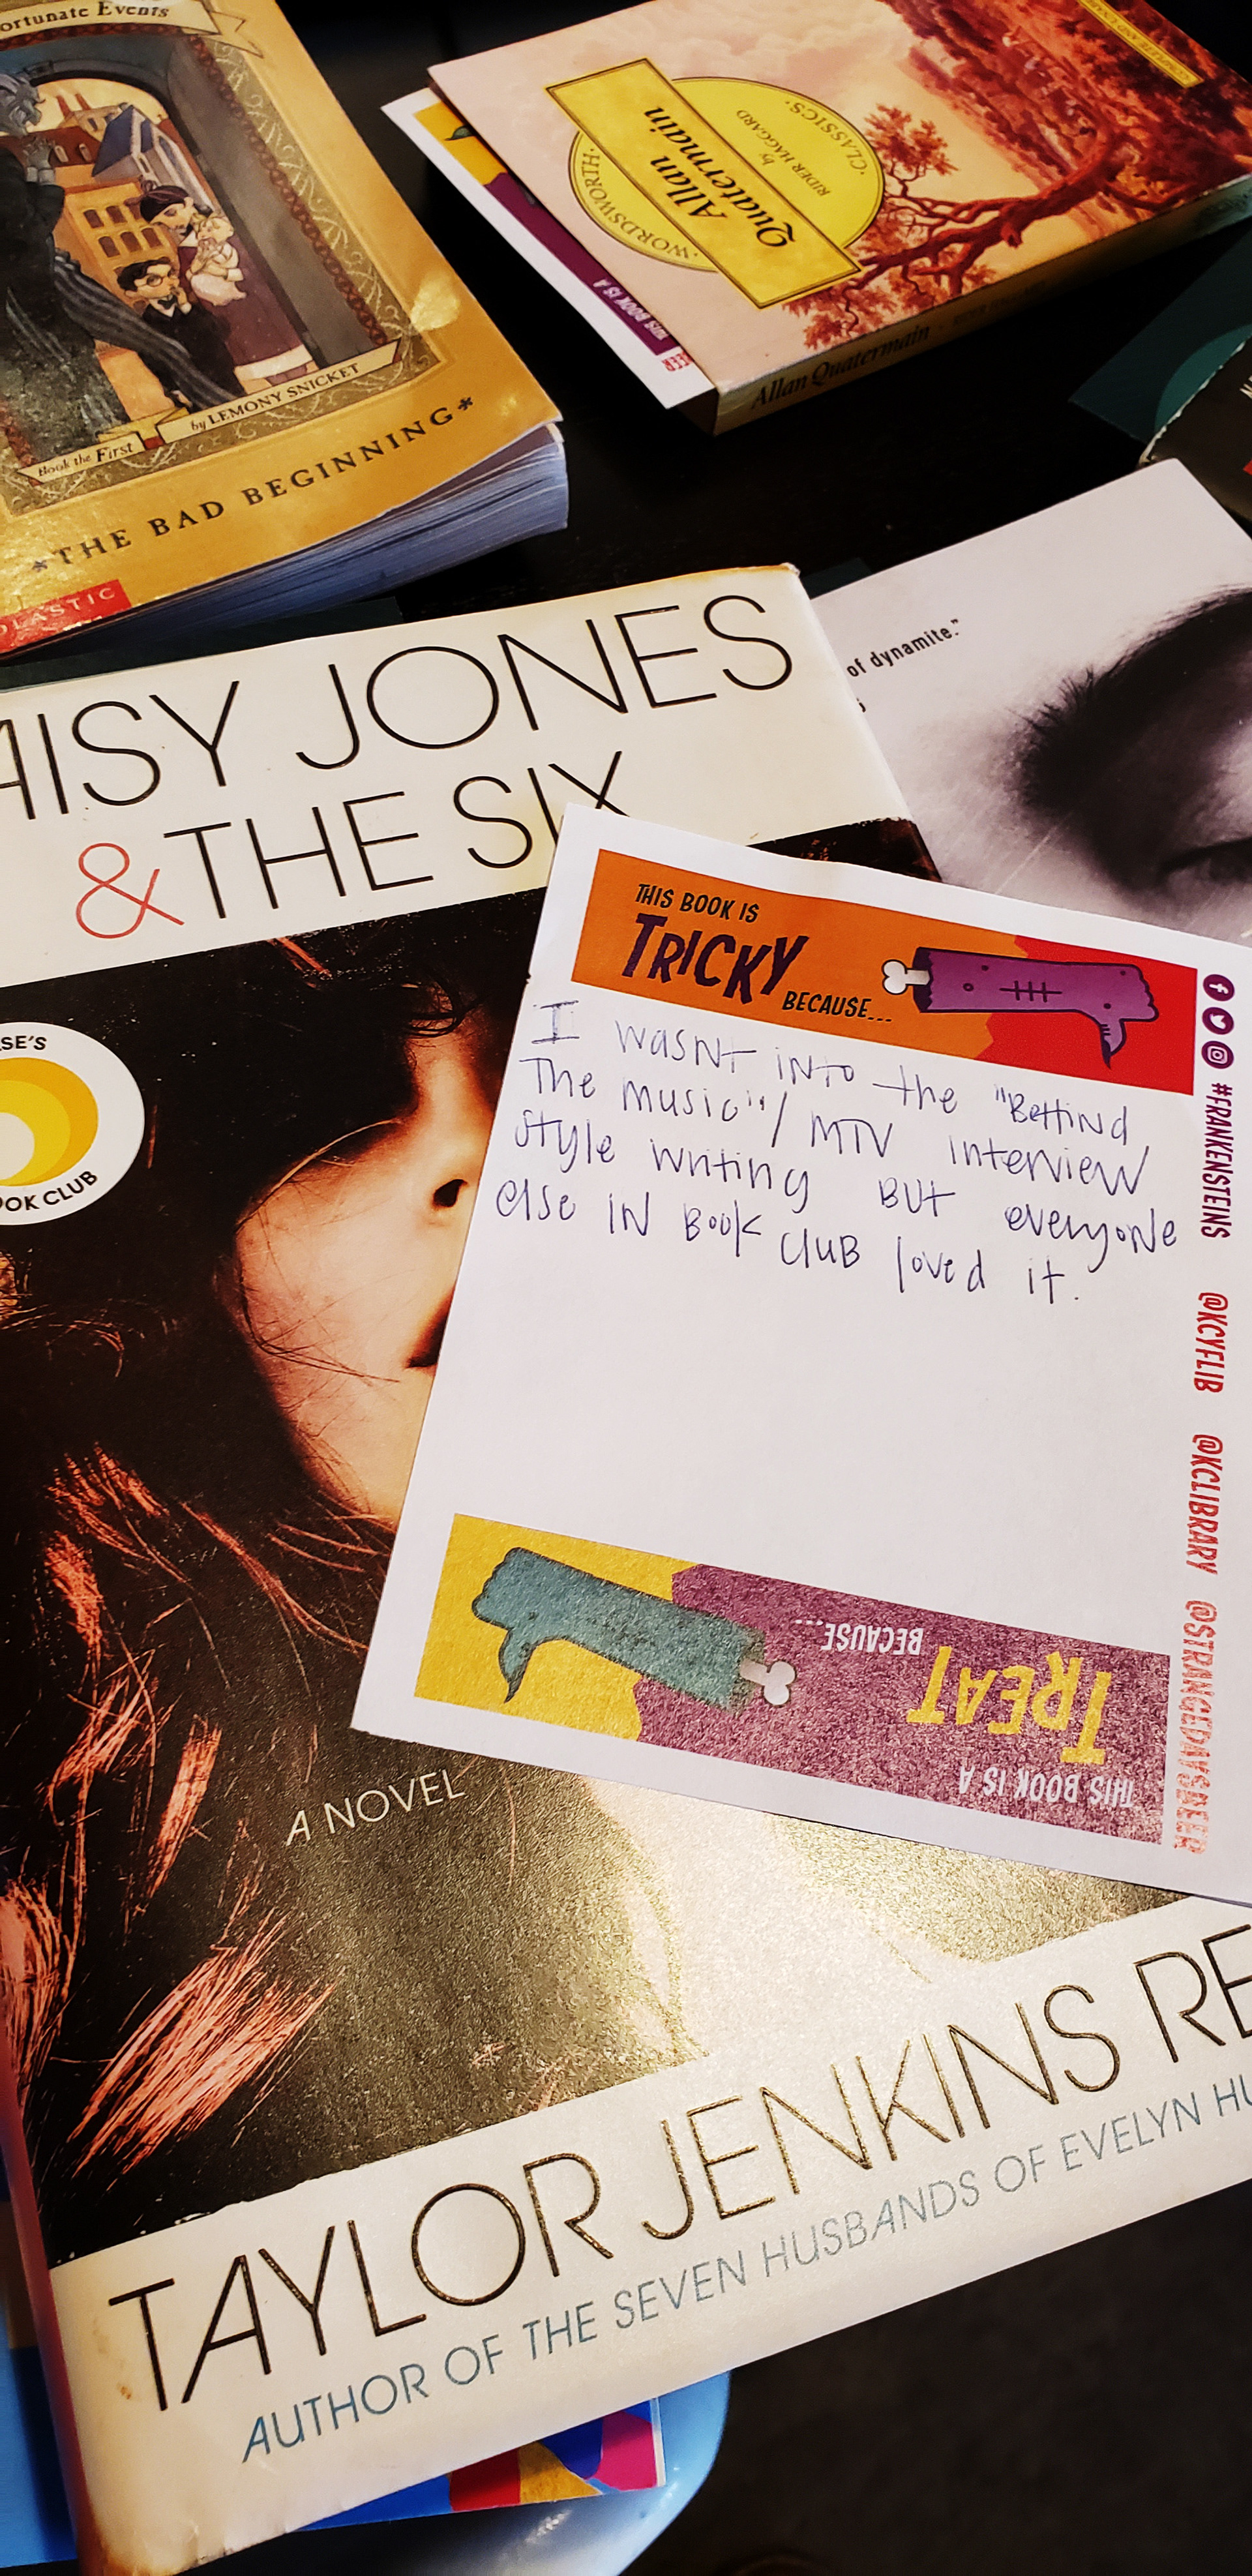 ortunate Events
Book the First
by LEMONY SNICKET
*THE BAD BEGINNING*
OLASTIC
WORDSWORTH
Allan
Quatermain
by
RIDER HAGGARD
·CLASSICS·
THIS BOOK IS A
EER
Allan Quatermain
of dynamite."
AISY JONES
& THE SIX
SE'S
OOK CLUB
THIS BOOK IS
TRICKY
BECAUSE...
I wasnt into the "Behind
The music"/ MTV interview
style writing But everyone
else in Book club loved it.
#FRANKENSTEINS @KCYFLIB @KCLIBRARY @STRANGEDAYSBEER
THIS BOOK IS A
TREAT
BECAUSE...
A NOVEL
TAYLOR JENKINS RE
AUTHOR OF THE SEVEN HUSBANDS OF EVELYN HU